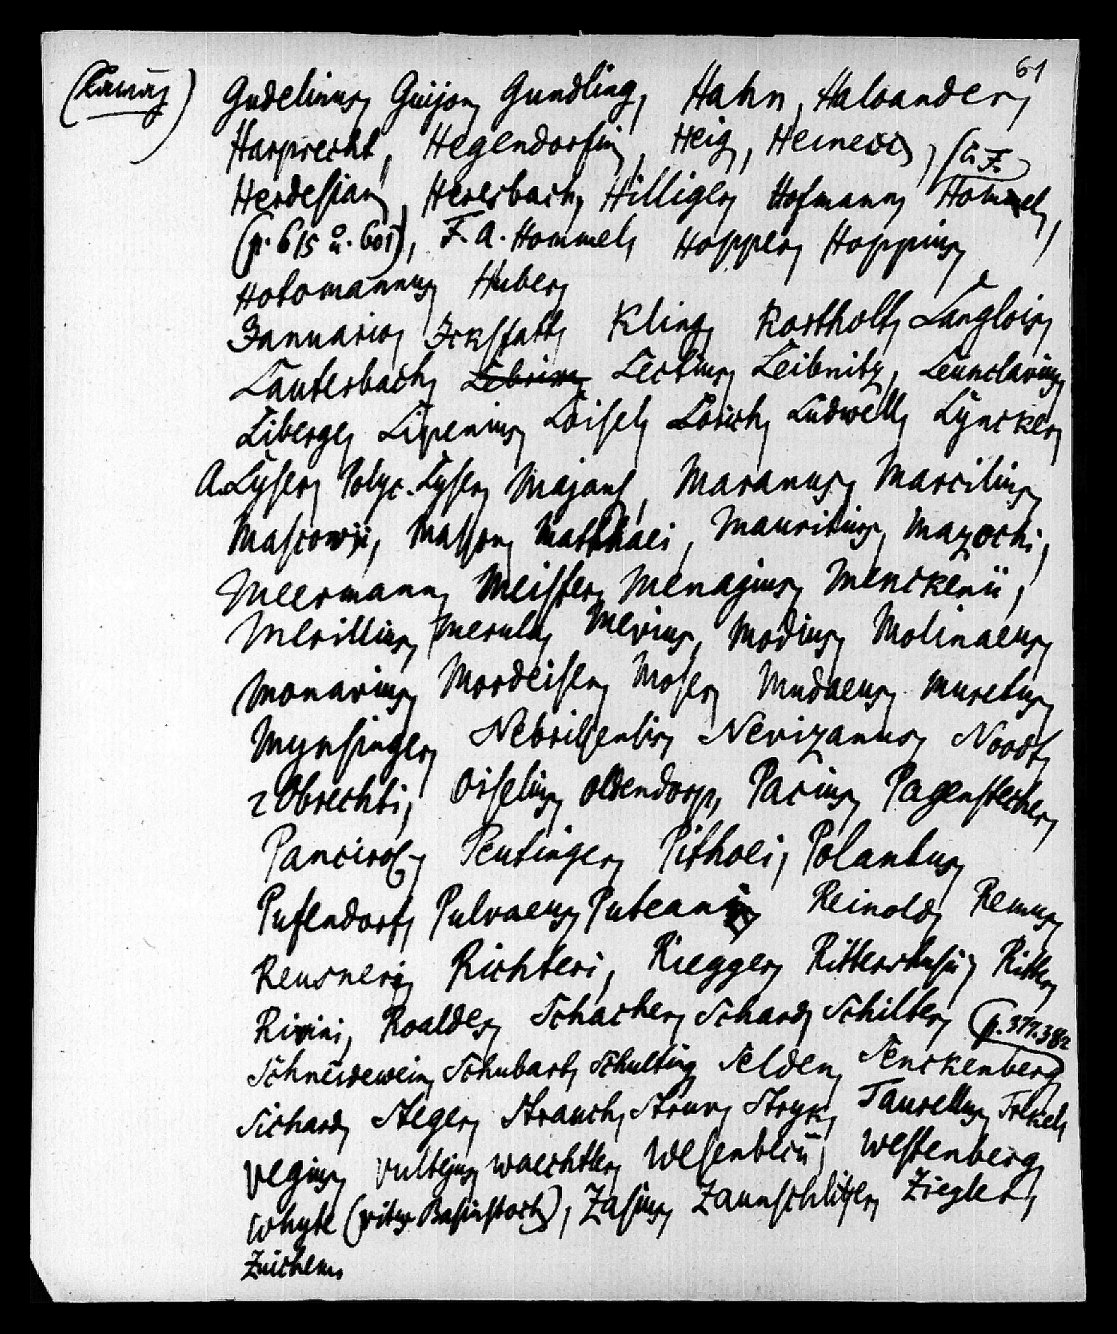 61
Gudelinus, Guijon, Gundling, Hahn, Haloander,
Harprecht, Hegendorfin, Heig, Heinecc, (C. F.
Herdesian, Heresbach, Hilliger, Hofmann, Hommel,
(p. 615 u. 601), F. A. Hommel, Hopper, Hoppius,
Hotomannus, Huber,
Januario, Ickstatt, Kling, Kortholt, Langlois,
Lauterbach, Lectius, Leibnitz, Leunclavius,
Liberge, Lipenius, Loisel, Lorich, Ludwell, Lyncker,
A. Lyser, Polyc. Lyser, Majans, Maranus, Marcilius,
Mascowii, Masson, Matthaei, Mauritius, Mazochi,
Meermann, Meister, Menagius, Menckenii,
Merillius, Merula, Mevius, Modius, Molinaeus,
Monavius, Mordeisen, Moser, Mudaeus, Muretus,
Mynsinger, Nebrissensis, Nevizanus, Noodt,
2 Obrechti, Oiselius, Oldendorp, Pacius, Pagenstecher,
Pancirol, Peutinger, Pithoei, Polantus,
Pufendorf, Pulvaeus, Puteani, Reinold, Remus,
Reusneri, Richteri, Riegger, Rittershusii, Ritter,
Rivini, Roaldes, Schacher, Schard, Schilter, (p. 379.382
Schneidewein, Schubart, Schulting, Selden, Senckenberg
Sichard, Steger, Strauch, Struv, Stryk, Taurellus,
Vegius, Vultejus, Waechtler, Wesenbecii, Westenberg,
Whyte (vitus Basinstoch), Zasius, Zaunschliffer, Ziegler,
Zuichem,